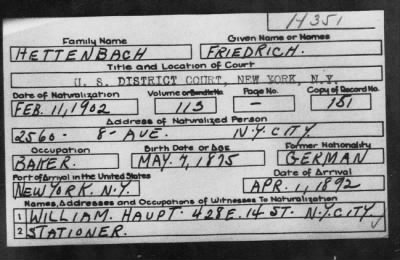 14351
Family Name Given Name or Names
HETTENBACH FRIEDRICH.
Title and Location of Court
U. S. DISTRICT COURT, NEW YORK, N.Y.
Date of Naturalization Volume or Bundle No. Page No. Copy of Record No.
FEB. 11, 1902 113 - 151
Address of Naturalized Person
2560 - 8 - AVE. N.Y. CITY.
Occupation Birth Date or Age Former Nationality
BAKER. MAY. 7, 1875 GERMAN
Port of Arrival in the United States Date of Arrival
NEW YORK. N.Y. APR. 1, 1892
Names, Addresses and Occupations of Witnesses To Naturalization
1 WILLIAM. HAUPT. 428 E. 14 ST. N.Y. CITY
2 STATIONER.